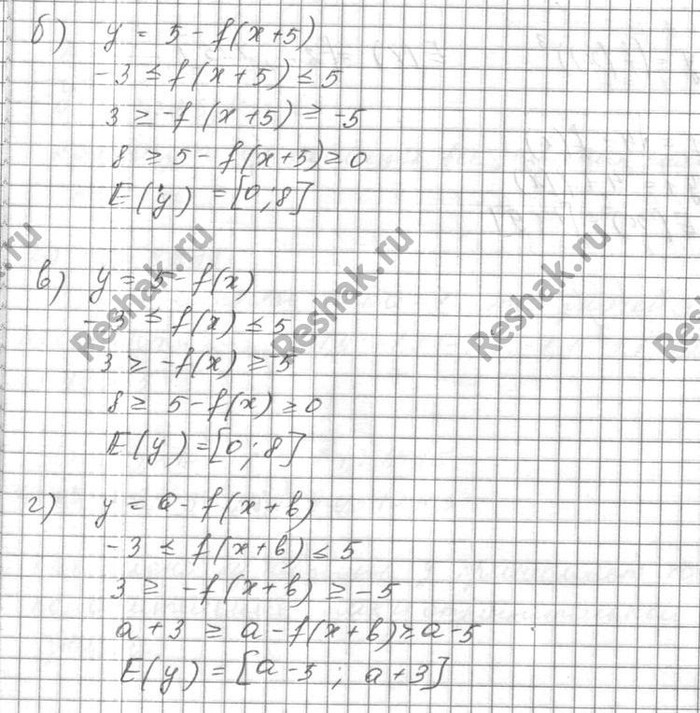 б) y = 5 - f(x+5)
-3 ≤ f(x+5) ≤ 5
3 ≥ -f(x+5) ≥ -5
8 ≥ 5 - f(x+5) ≥ 0
E(y) = [0; 8]
в) y = 5 - f(x)
-3 ≤ f(x) ≤ 5
3 ≥ -f(x) ≥ -5
8 ≥ 5 - f(x) ≥ 0
E(y) = [0; 8]
г) y = a - f(x+b)
-3 ≤ f(x+b) ≤ 5
3 ≥ -f(x+b) ≥ -5
a+3 ≥ a - f(x+b) ≥ a-5
E(y) = [a-5; a+3]
Reshak.ru
Reshak.ru
Reshak.ru